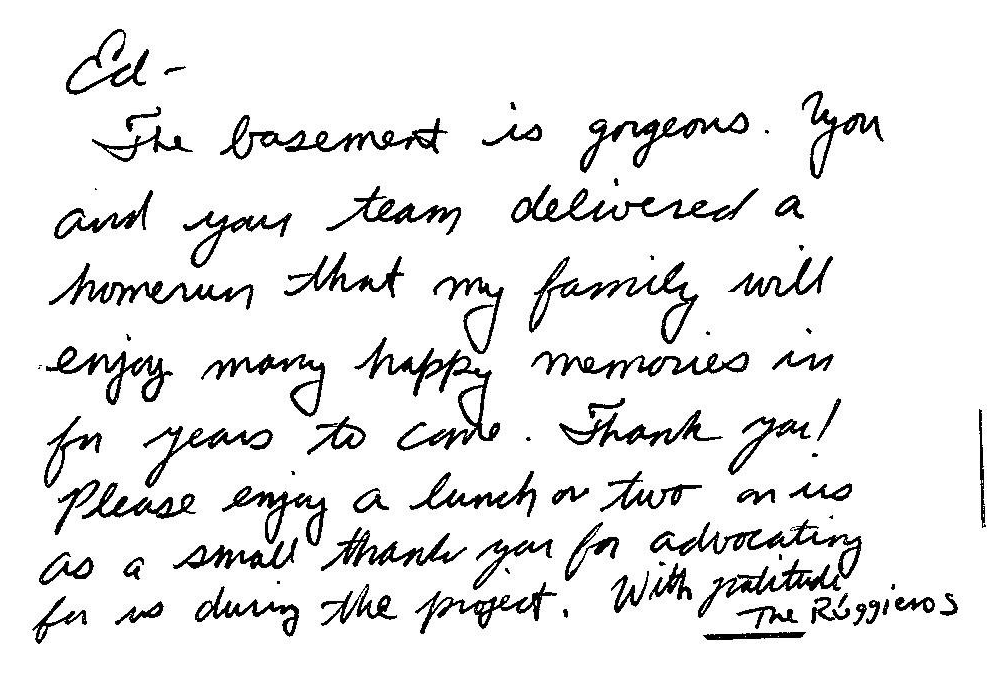 Ed-
The basement is gorgeous. You
and your team delivered a
homerun that my family will
enjoy many happy memories in
for years to come. Thank you!
Please enjoy a lunch or two on us
as a small thank you for advocating
for us during the project. With gratitude
The Ruggieros